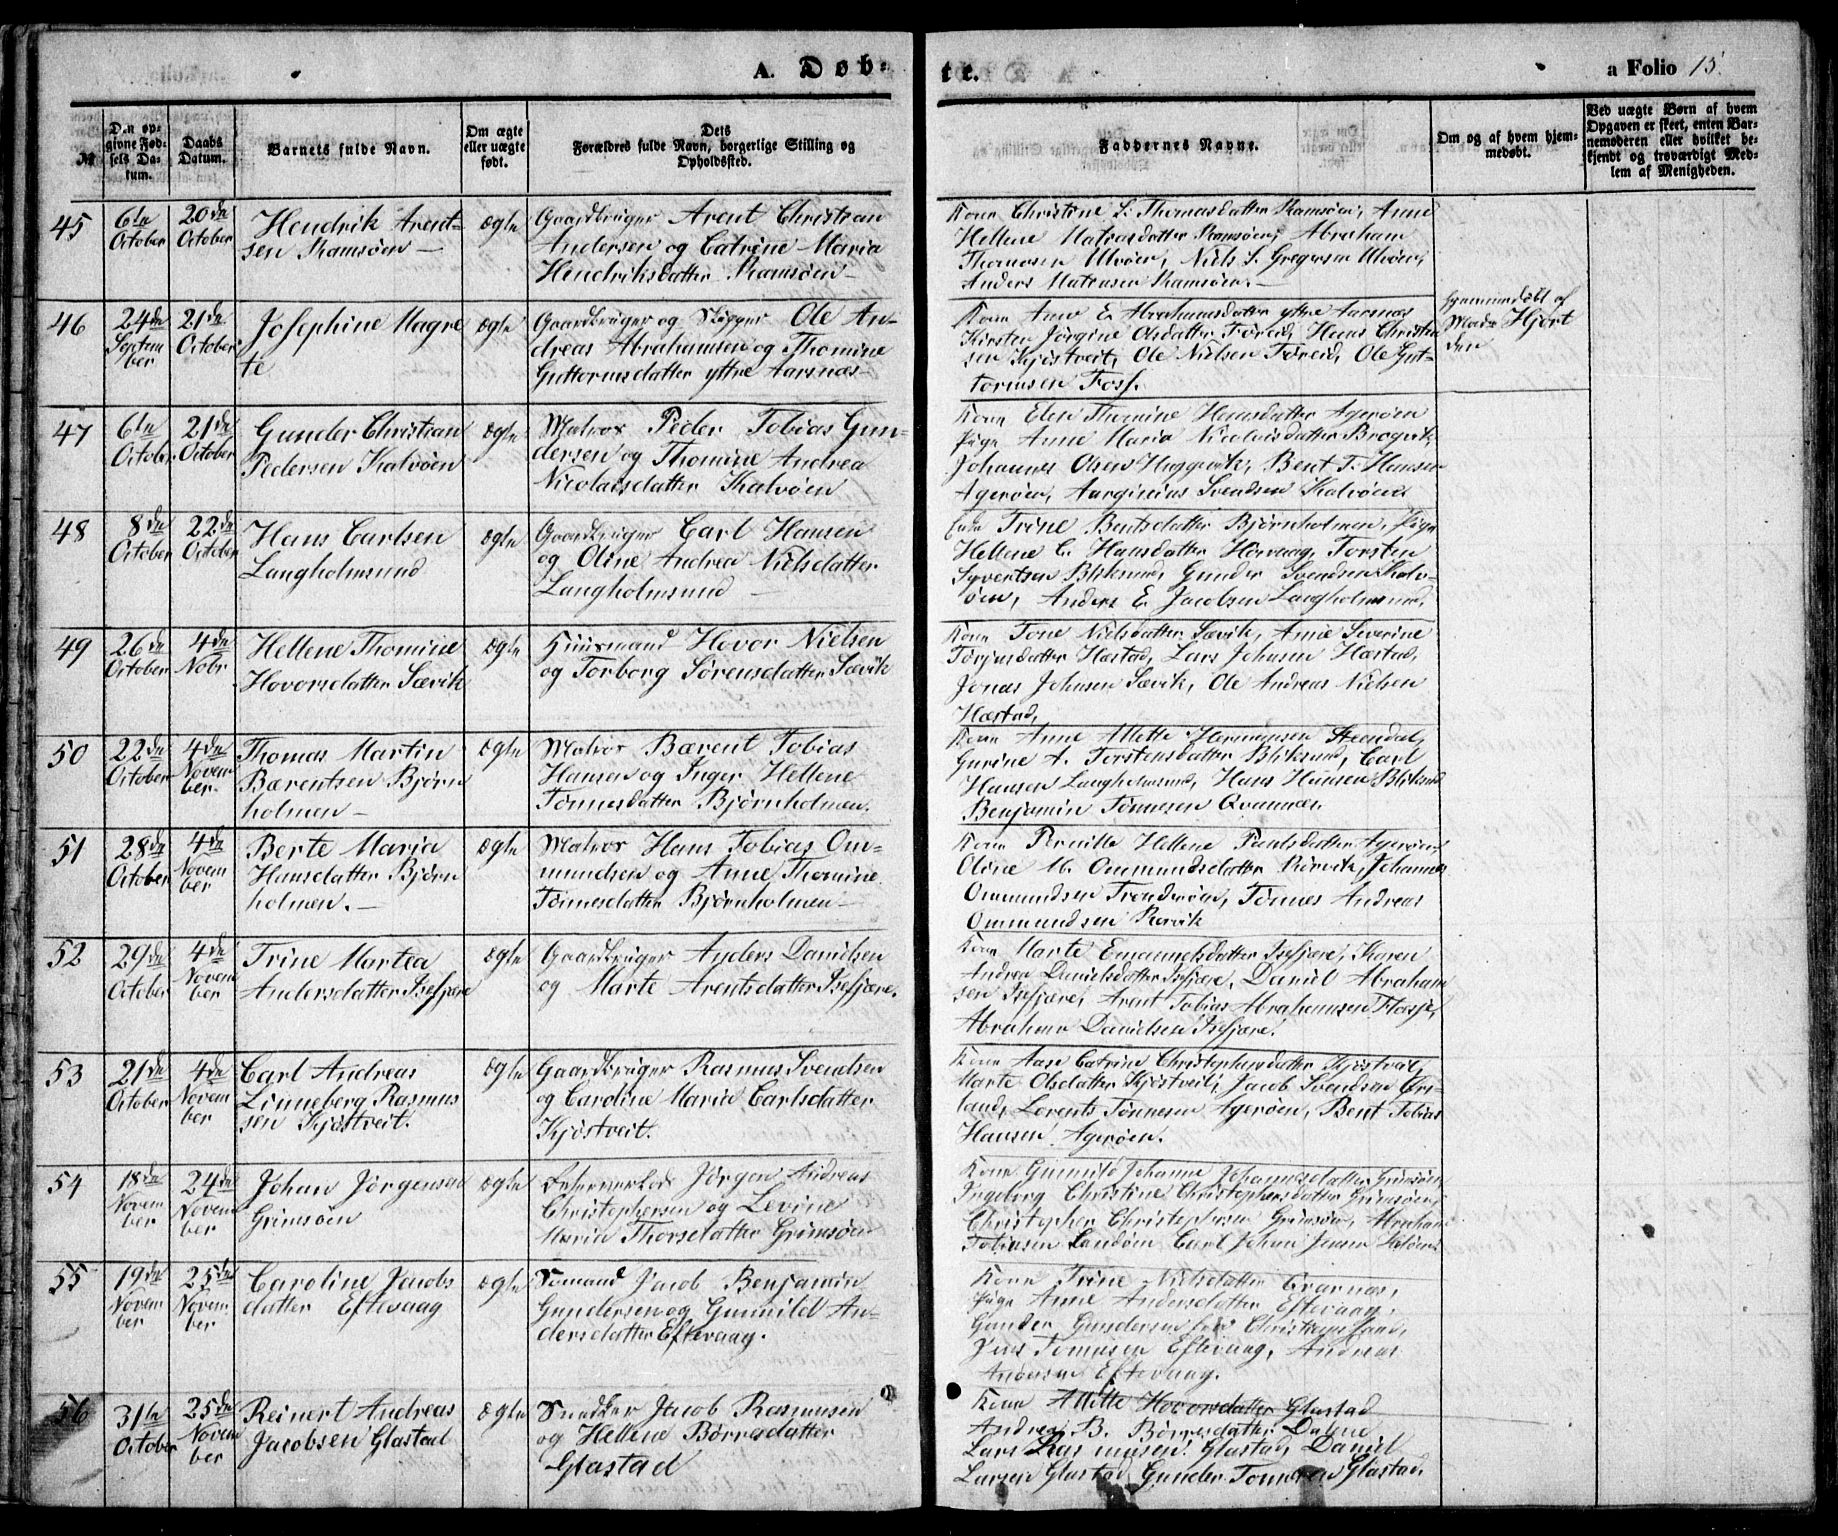 A. Døb-
te.
a Folio 15.
№
Den op-
givne Fød-
sels Da-
tum.
Daabs
Datum.
Barnets fulde Navn.
Om ægte
eller uægte
født.
Dets
Forældres fulde Navn, borgerlige Stilling og
Opholdssted.
Faddernes Navne.
Om og af hvem hjem-
medøbt.
Ved uægte Børn af hvem
Opgaven er skeet, enten Bar-
nemoderen eller hvilket be-
kjendt og troværdigt Med-
lem af Menigheden.
45
6te
October
20de
October
Hendrik Arent-
sen Ramsøen
ægte
Gaardbruger Arent Christian
Andersen og Catrine Maria
Hendriksdatter Ramsøen
Kone Christine S. Thomasdatter Ramsøen, Anne
Hellene Matiasdatter Ramsøen, Abraham
Thomasen Ulvøen, Niels S. Gregersen Ulvøen,
Anders Matiasen Ramsøen.
46
24de
Septem
ber
21de
October
Josephine Magre
te
ægte
Gaardbruger og Skipper Ole An-
dreas Abrahamsen og Thomine
Guttormsdatter yttre Aarsnæs
Kone Anne E. Abrahamsdatter yttre Aarsnæs
Kirsten Jørgine Olsdatter Føreid, Hans Christian
sen Kjøstveit, Ole Nielsen Føreid, Ole Gut-
tormsen Foss.
Hjemmedøbt af
Mads Hjort
den
47
6te
October
21de
October
Gunder Christian
Pedersen Kalvøen
ægte
Matros Peder Tobias Gun-
dersen og Thomine Andrea
Nicolaisdatter Kalvøen
Kone Elen Thomine Hansdatter Agerøen
Pige Anne Maria Nicolaisdatter Brogvik
Johannes Olsen Bent T. Hansen
Agerøen, Svendsen Kalvøen
48
8de
October
22de
October
Hans Carlsen
Langholmsund
ægte
Gaardbruger Carl Hansen
og Oline Andrea Nielsdatter
Langholmsund
Trine Bentsdatter Bjørnholmen, Pige
Hellene C. Hansdatter Hørvaag, Torsten
Syvertsen Bliksund, Gunder Svendsen Kalv-
øen, Anders E. Jacobsen Langholmsund,
49
26de
October
4de
Nobr
Hellene Thomine
Hovorsdatter Sævik
ægte
Huusmand Hovor Nielsen
og Torborg Sørensdatter Sævik
Kone Tone Nielsdatter Sævik, Anne Severine
Terjusdatter Hæstad, Lars Johnsen Hæstad,
Jonas Johnsen Sævik, Ole Andreas Nielsen
Hæstad,
50
22de
October
4de
Novem-
ber
Thomas Martin
Bærentsen Bjørn
holmen
ægte
Matros Bærent Tobias
Hansen og Inger Hellene
Tønnesdatter Bjørnholmen.
Kone Anne Mette Hermansen Steendal,
Gurine A. Torstensdatter Bliksund, Carl
Hansen Langholmsund, Hans Hansen Bliksund
Benjamin Tønnesen Qvannæs.
51
28de
October
4de
Novem
ber
Berte Maria
Hansdatter Bjørn
holmen.
ægte
Matros Hans Tobias Om-
mundsen og Anne Thomine
Tønnesdatter Bjørnholmen
Kone Pernille Hellene Poulsdatter Agerøen
Oline M. Ommundsdatter Rørvik, Johannes
Ommundsen Trondsøen, Tønnes Andreas
Ommundsen Rørvik
52
29de
October
4de
Novem
ber
Trine Martea
Andersdatter Isefjære
ægte
Gaardbruger Anders Danielsen
og Marte Arentsdatter Isefjære.
Kone Marte Emanuelsdatter Isefjære, Karen
Andrea Danielsdatter Isefjære, Daniel Abraham
sen Isefjære, Arent Tobias Abrahamsen
Abraham Danielsen Isefjære.
53
21de
October
4de
Novem
ber
Carl Andreas
Linneberg Rasmus
sen Kjøstveit.
ægte
Gaardbruger Rasmus Svendsen
og Caroline Maria Carlsdatter
Kjøstveit.
Kone Aase Catrine Christophersdatter Kjøstveit,
Marte Olsdatter Kjøstveit, Jacob Svendsen
land, Lorents Tønnesen Agerøen, Bent Tobias
Hansen Agerøen.
54
18de
Novem
ber
24de
Novem
ber
Johan Jørgensen
Grimsøen
ægte
Jørgen Andreas
Christophersen og Levine
Maria Thorsdatter Grimsøen
Kone Gunnild Johanne Johannesdatter Grimsøen
Ingeborg Christine Christophersdatter Grimsøen,
Christopher Christophersen Grimsøen, Abraham
Tobiasen Sandøen Carl Johan Jensen
55
19de
Novem
ber
25de
Novem-
ber
Caroline Jacobs
datter Eftevaag
ægte
Sømand Jacob Benjamin
Gundersen og Gunnild An-
dersdatter Eftevaag.
Kone Trine Nielsdatter
Pige Anne Andersdatter Eftevaag,
Gunder Gundersen fra Christianssand,
Jens Tomasen Eftevaag, Andreas
Andersen Eftevaag.
56
31te
October
25de
Novem
ber
Reinert Andreas
Jacobsen Glastad
ægte
Snedker Jacob Rasmusen
og Hellene Børresdatter
Glastad
Kone Mette Hovorsdatter Glastad
Andrea B. Børresdatter Dalene
Lars Rasmusen Glastad, Daniel
Larsen Glastad, Gunder Tønnesen Glastad.